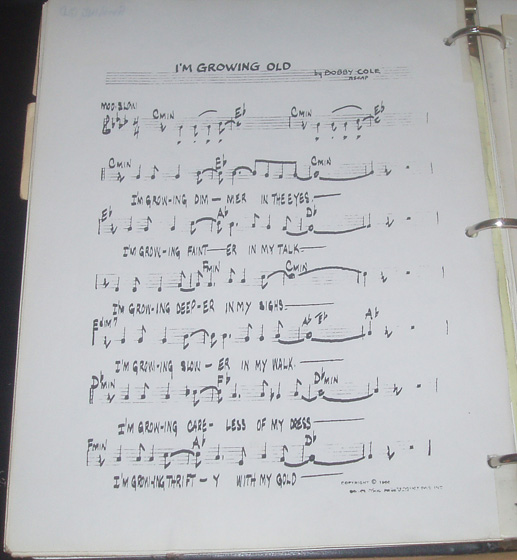 I'M GROWING OLD
by BOBBY COLE
ASCAP
MOD. SLOW
Cmin Eb Cmin Eb
Cmin Eb Cmin
I'M GROW-ING DIM - MER IN THE EYES.
Eb Ab Db
I'M GROW-ING FAINT-ER IN MY TALK.
Fmin Cmin
I'M GROW-ING DEEP-ER IN MY SIGHS.
Ab Eb Ab
I'M GROW-ING SLOW-ER IN MY WALK.
Dbmin Dbmin
I'M GROW-ING CARE-LESS OF MY DRESS
Fmin Ab Db
I'M GROW-ING THRIFT-Y WITH MY GOLD
COPYRIGHT ©